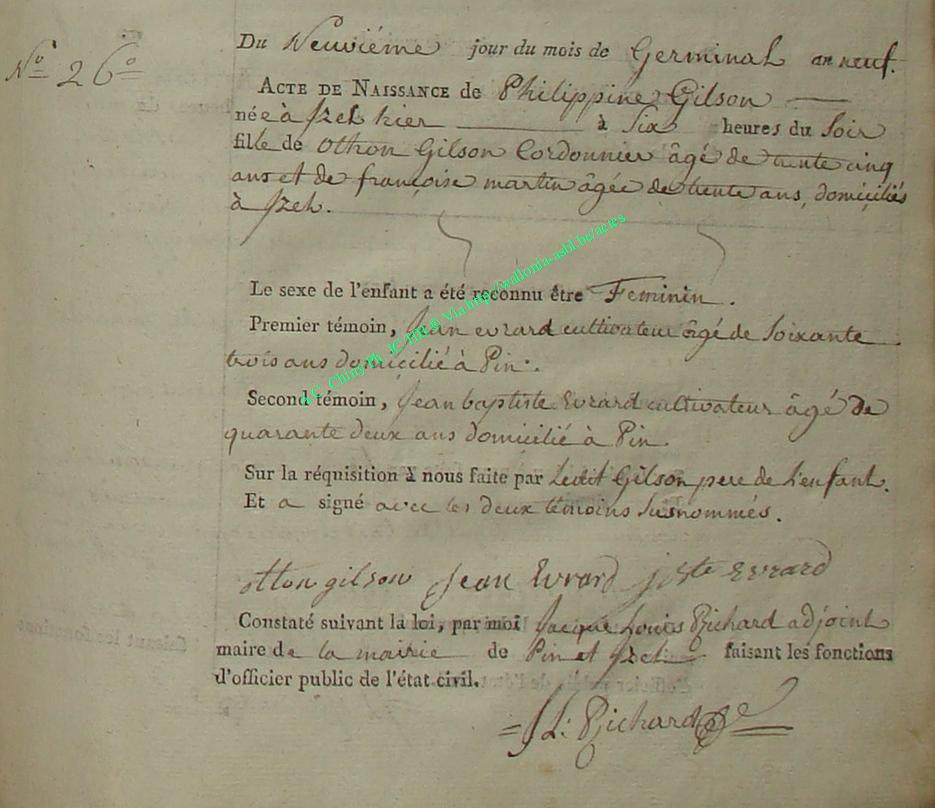 N.o 26.o
Du Neuviéme jour du mois de Germinal an neuf.
ACTE DE NAISSANCE de Philippine Gilson
née à Izel hier à Six heures du Soir
fille de Othon Gilson Cordonnier âgé de trente cinq
ans et de françoise martin âgée de trente ans, domiciliés
à Izel.
Le sexe de l'enfant a été reconnu être Feminin.
Premier témoin, Jean evrard cultivateur âgé de Soixante
trois ans domicilié à Pin.
Second témoin, Jean baptiste Evrard cultivateur âgé de
quarante deux ans domicilié à Pin.
Sur la réquisition à nous faite par Ledit Gilson pere de L'enfant.
Et a signé avec les deux témoins Susnommés.
otton gilson Jean Evrard jbste Evrard
Constaté suivant la loi, par moi Jacque Louis Richard adjoint
maire de la mairie de Pin et Izel faisant les fonctions
d'officier public de l'état civil.
J L: Richard
Via http://wallonia-asbl.be/actes